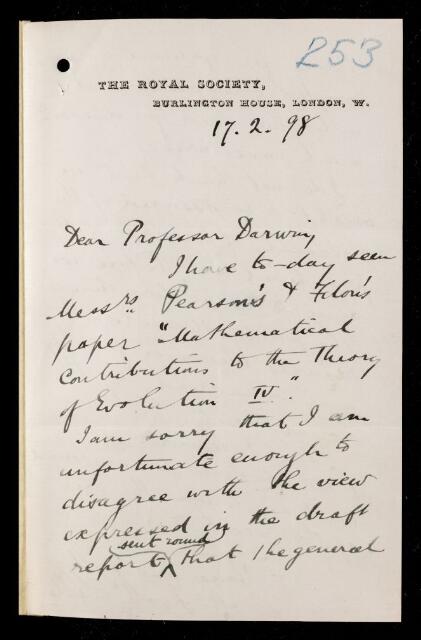 253
THE ROYAL SOCIETY,
BURLINGTON HOUSE, LONDON, W.
17. 2. 98
Dear Professor Darwin,
I have to-day seen
Messrs. Pearson's & Filon's
paper "Mathematical
Contributions to the Theory
of Evolution IV."
I am sorry that I am
unfortunate enough to
disagree with the view
expressed in the draft
sent round
report that the general